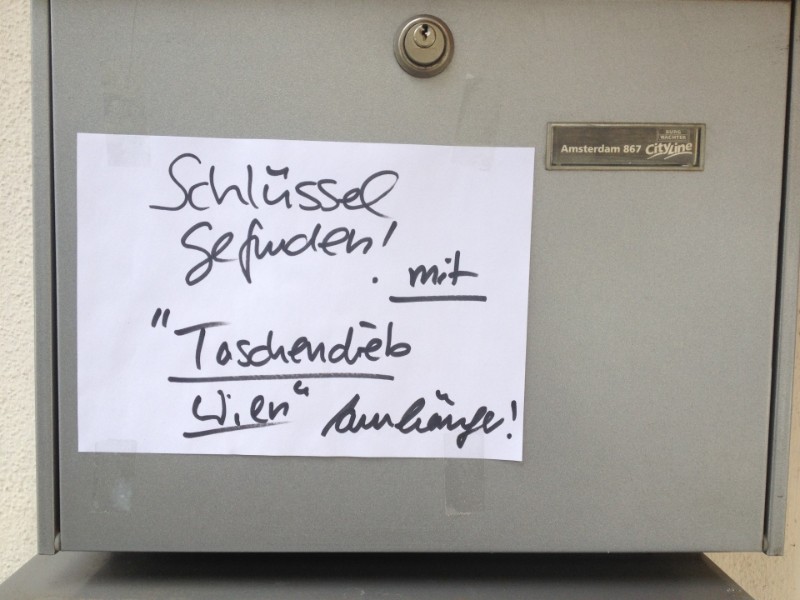 Schlüssel
gefunden!
. mit
"Taschendieb
Wien" Anhänger!
Amsterdam 867 CityLine
BURG
WÄCHTER